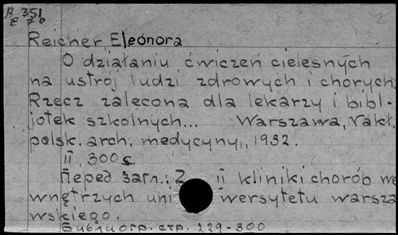 A 351
E 70
Reicher Eleonora
O działaniu ćwiczeń cielesnych
na ustrój ludzi zdrowych i chorych.
Rzecz zalecona dla lekarzy i bibl-
jotek szkolnych... Warszawa, Nakł.
polsk. arch. medycyny, 1932.
II, 300 с.
Перед загл.: Z II kliniki chorób we
wnętrzych uni wersytetu warsza
wskiego.
Библиогр. стр. 229-300